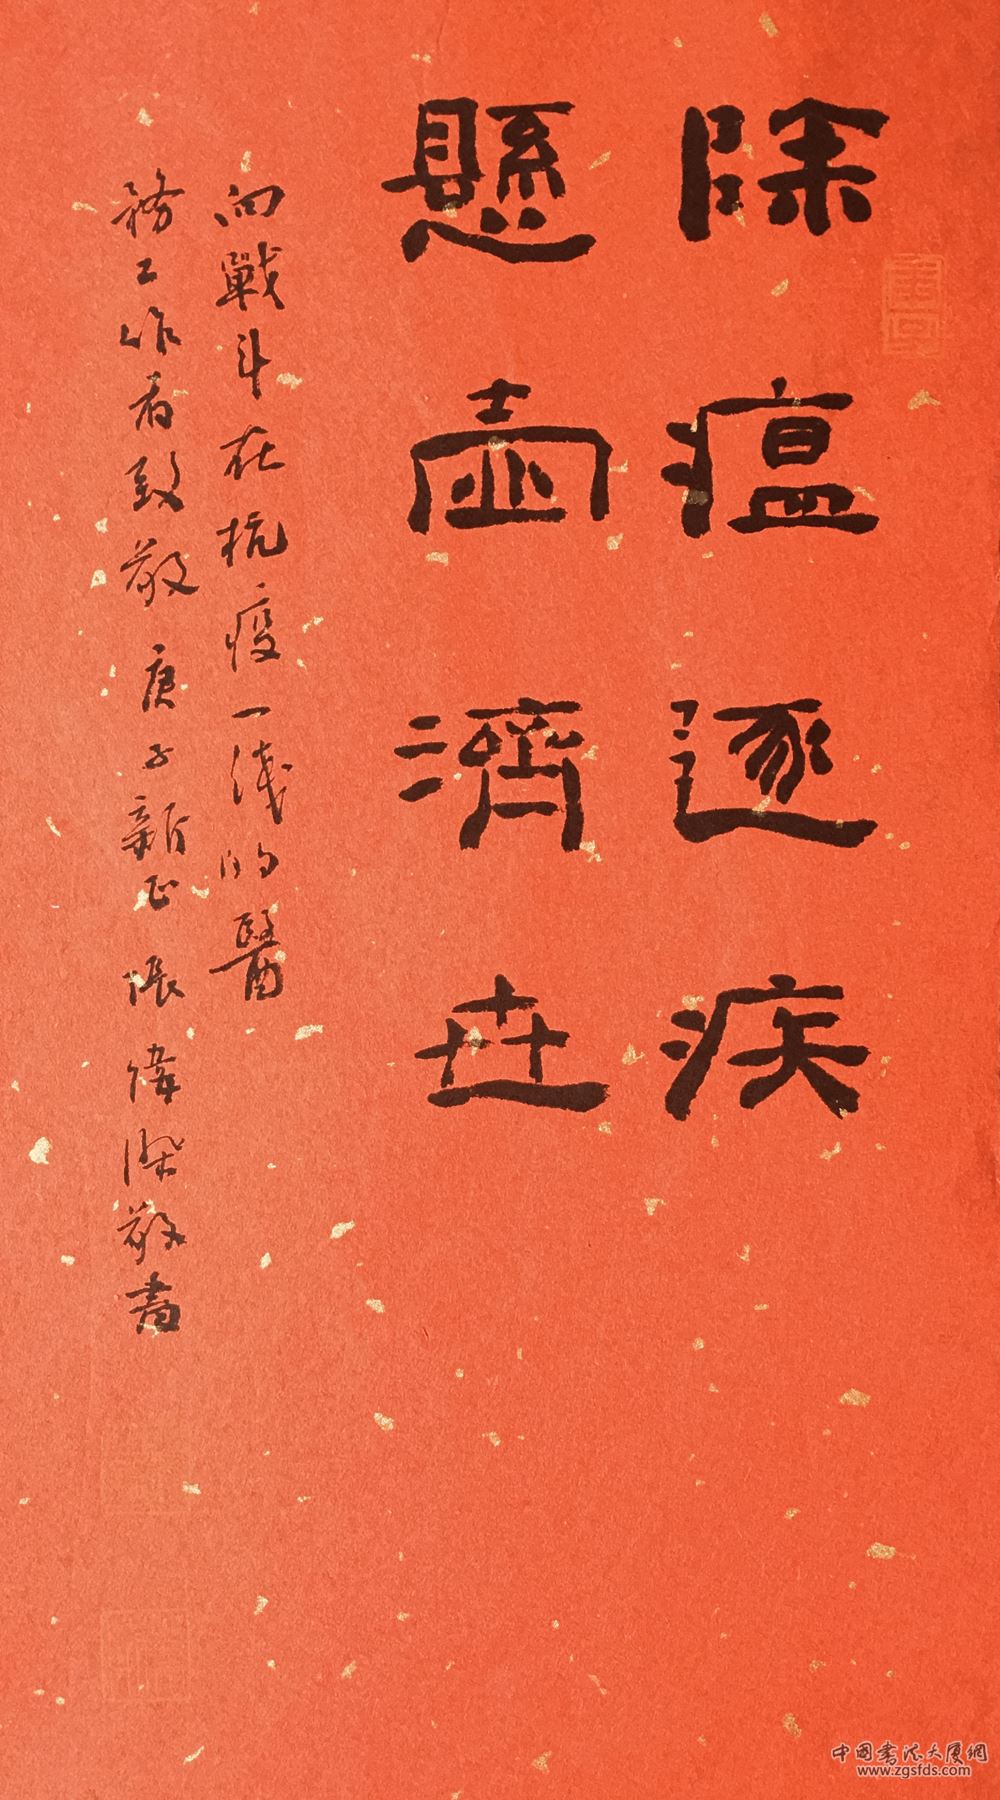 除瘟逐疾
懸壺濟世
向戰斗在抗疫一线的醫
務工作者致敬庚子新正張偉深敬書
中国書法大厦網
www.zgsfds.com